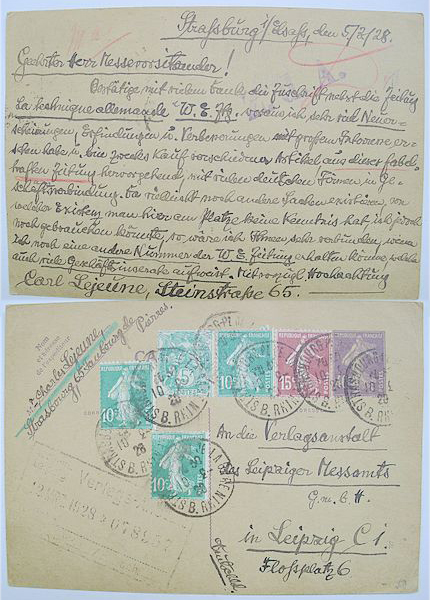 Straßburg i/Elsaß, den 5/2/28.
Geehrter Herr Messevorsitzender!
Bestätige mit vielem Danke die Zuschrift nebst die Zeitung
La technique allemande W.E.Ztg. woraus ich sehr viel Neuer-
scheinungen, Erfindungen u. Verbesserungen mit großem Interesse er-
sehen habe u. bin zwecks Kauf verschiedener Artikel aus dieser fabel-
haften Zeitung hervorgehend, mit vielen deutschen Firmen in Ge-
schäftsverbindung. Da vielleicht noch andere Sachen existieren, von
welcher Existenz man hier am Platze keine Kenntnis hat, ich jedoch
noch gebrauchen könnte, so wäre ich Ihnen sehr verbunden, wenn
ich noch eine andere Nummer der W.E. Zeitung erhalten könnte, welche
auch viele Geschäftsinserate aufweist. Mit vorzügl. Hochachtung
Carl Lejeune, Steinstraße 65.
Charles Lejeune
Strasbourg 65 Faubourg de
Pierres.
REPUBLIQUE FRANÇAISE
10c
5c
10c
15c
10c
STRASBOURG
BAS RHIN
28
An die Verlagsanstalt
des Leipziger Messamts
G.m.b.H
in Leipzig C1.
Floßplatz 6
Verlags
1928